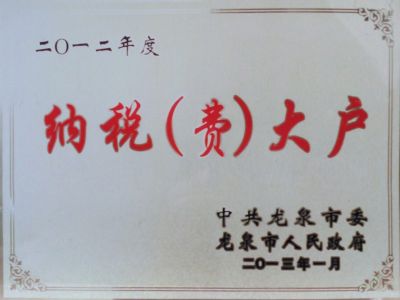 二〇一二年度
纳税(费)大户
中共龙泉市委
龙泉市人民政府
二〇一三年一月